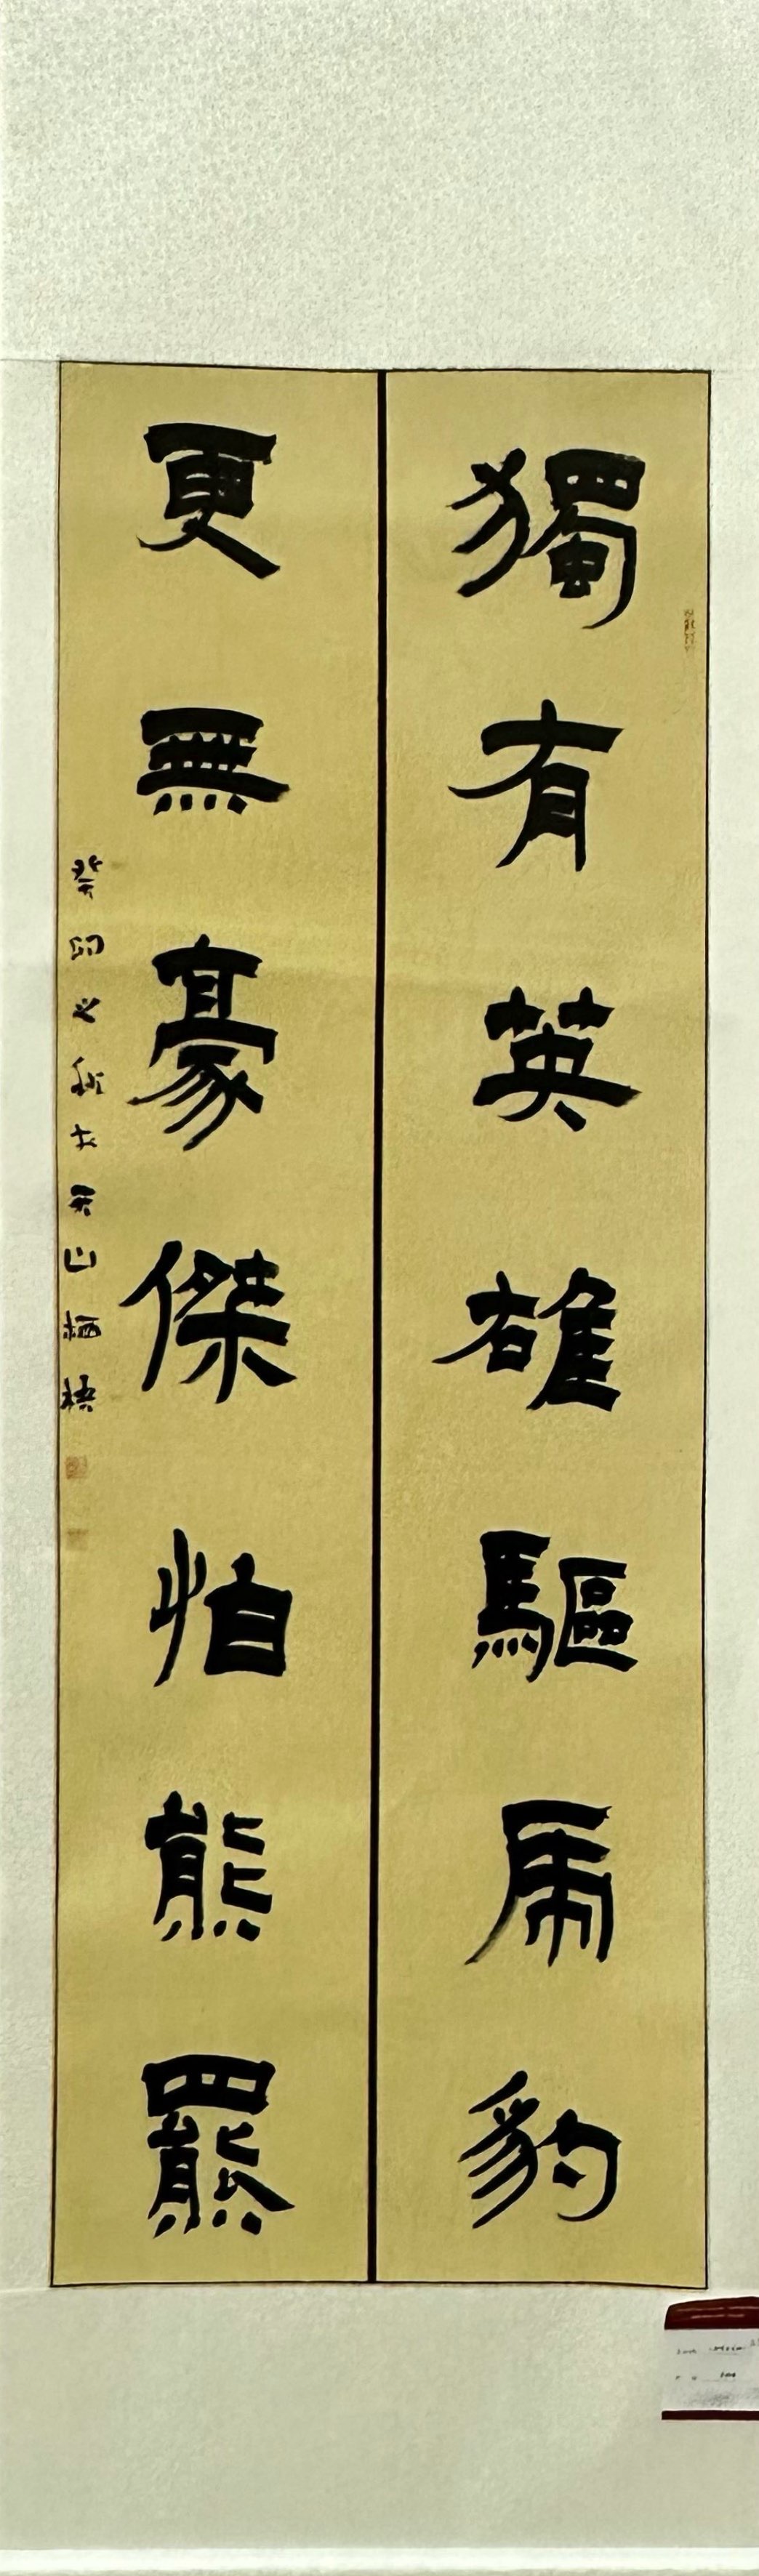 獨有英雄驅虎豹
更無豪傑怕熊羆
癸卯之秋於天山栖梧